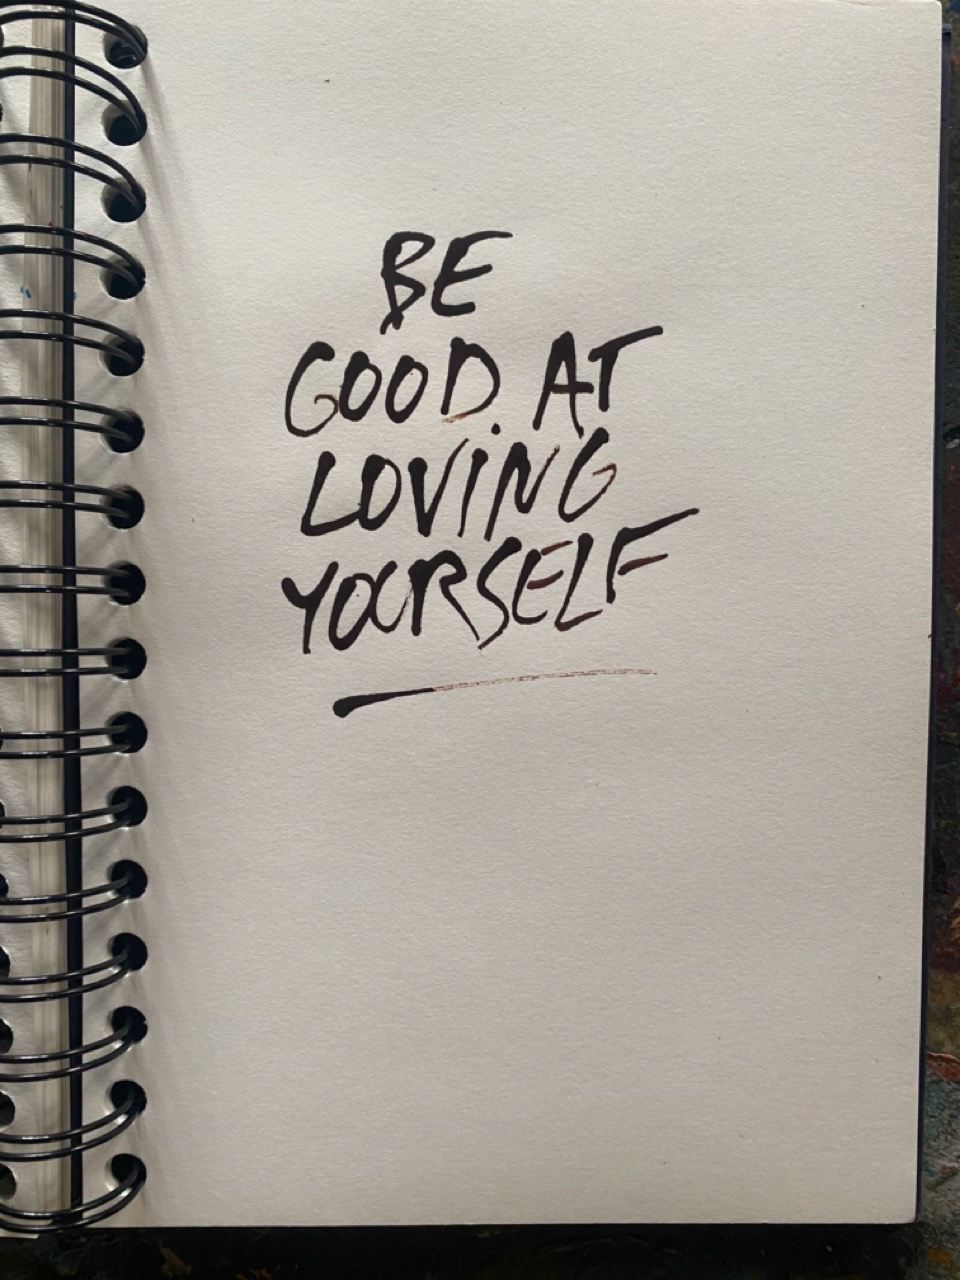 BE
GOOD AT
LOVING
YOURSELF